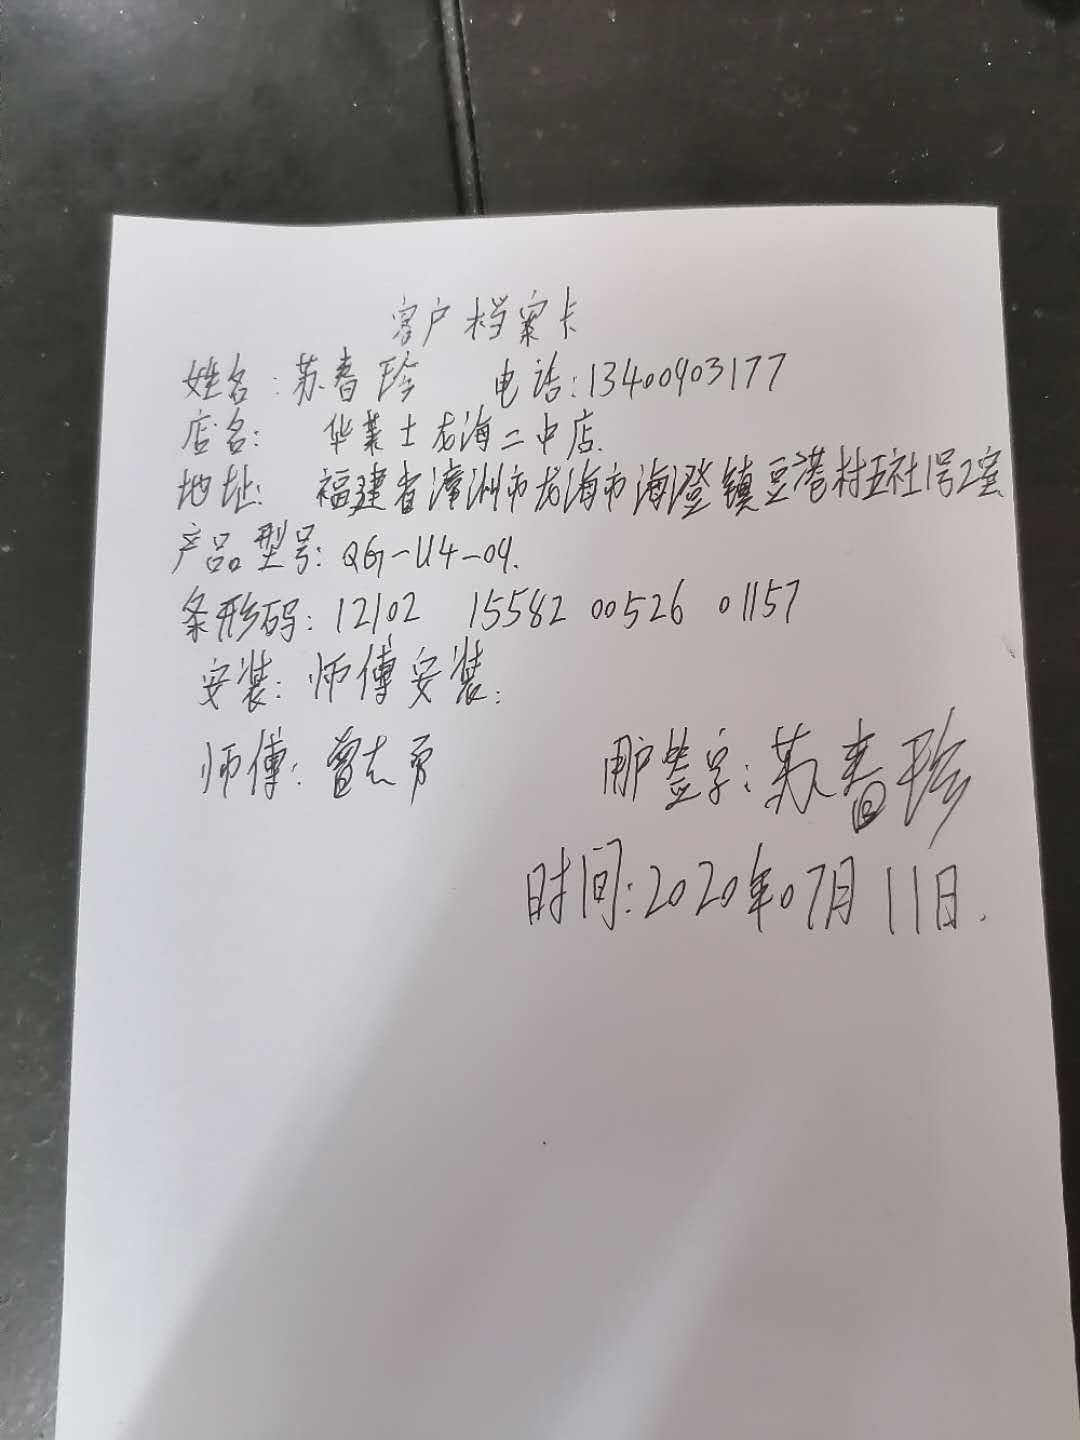 客户档案卡
姓名:苏春珍 电话:13400903177
店名: 华莱士龙海二中店.
地址: 福建省漳洲市龙海市海澄镇豆巷村五社1号2室
产品型号: QG-U4-09.
条形码: 12102 15582 00526 01157
安装: 师傅安装.
师傅: 曾志勇 用户签字:苏春珍
时间:2020年07月11日.